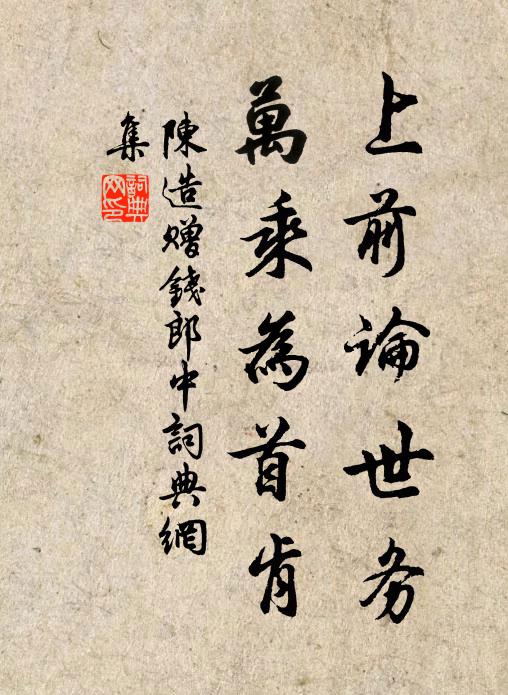 上前論世务
萬乘為首肯
陳造贈錢郎中詞典網
集
詞典网印